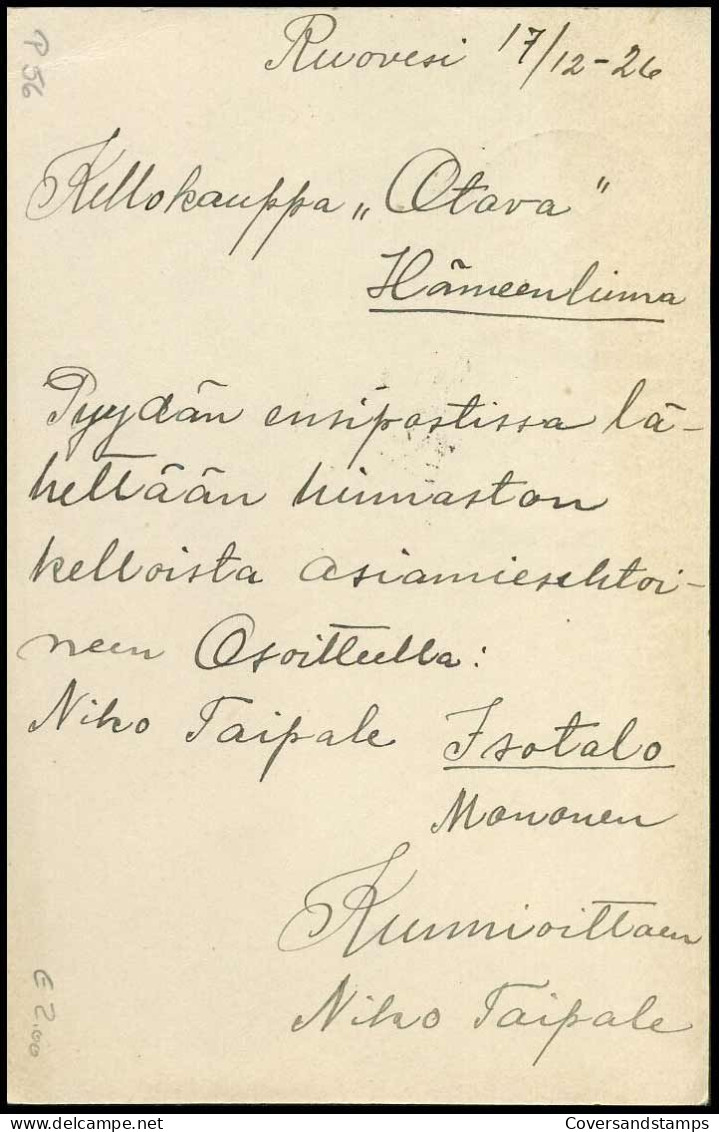 Ruovesi 17/12-26
Kellokauppa „Otava"
Hämeenlinna
Pyydän ensipostissa lä-
hettään hinnaston
kelloista asiamiesehtoi-
neen Osoitteella:
Niko Taipale Isotalo
Mononen
Kunnioittaen
Niko Taipale
P 56
€ 2.00
Coversandstamps